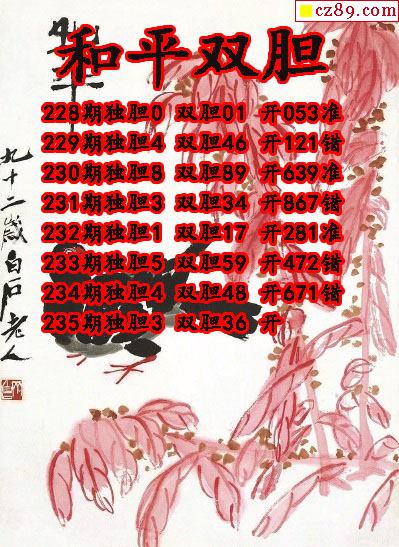 cz89.com
和平双胆
228期独胆0 双胆01 开053准
229期独胆4 双胆46 开121错
230期独胆8 双胆89 开639准
231期独胆3 双胆34 开867错
232期独胆1 双胆17 开281准
233期独胆5 双胆59 开472错
234期独胆4 双胆48 开671错
235期独胆3 双胆36 开
九十二岁白石老人